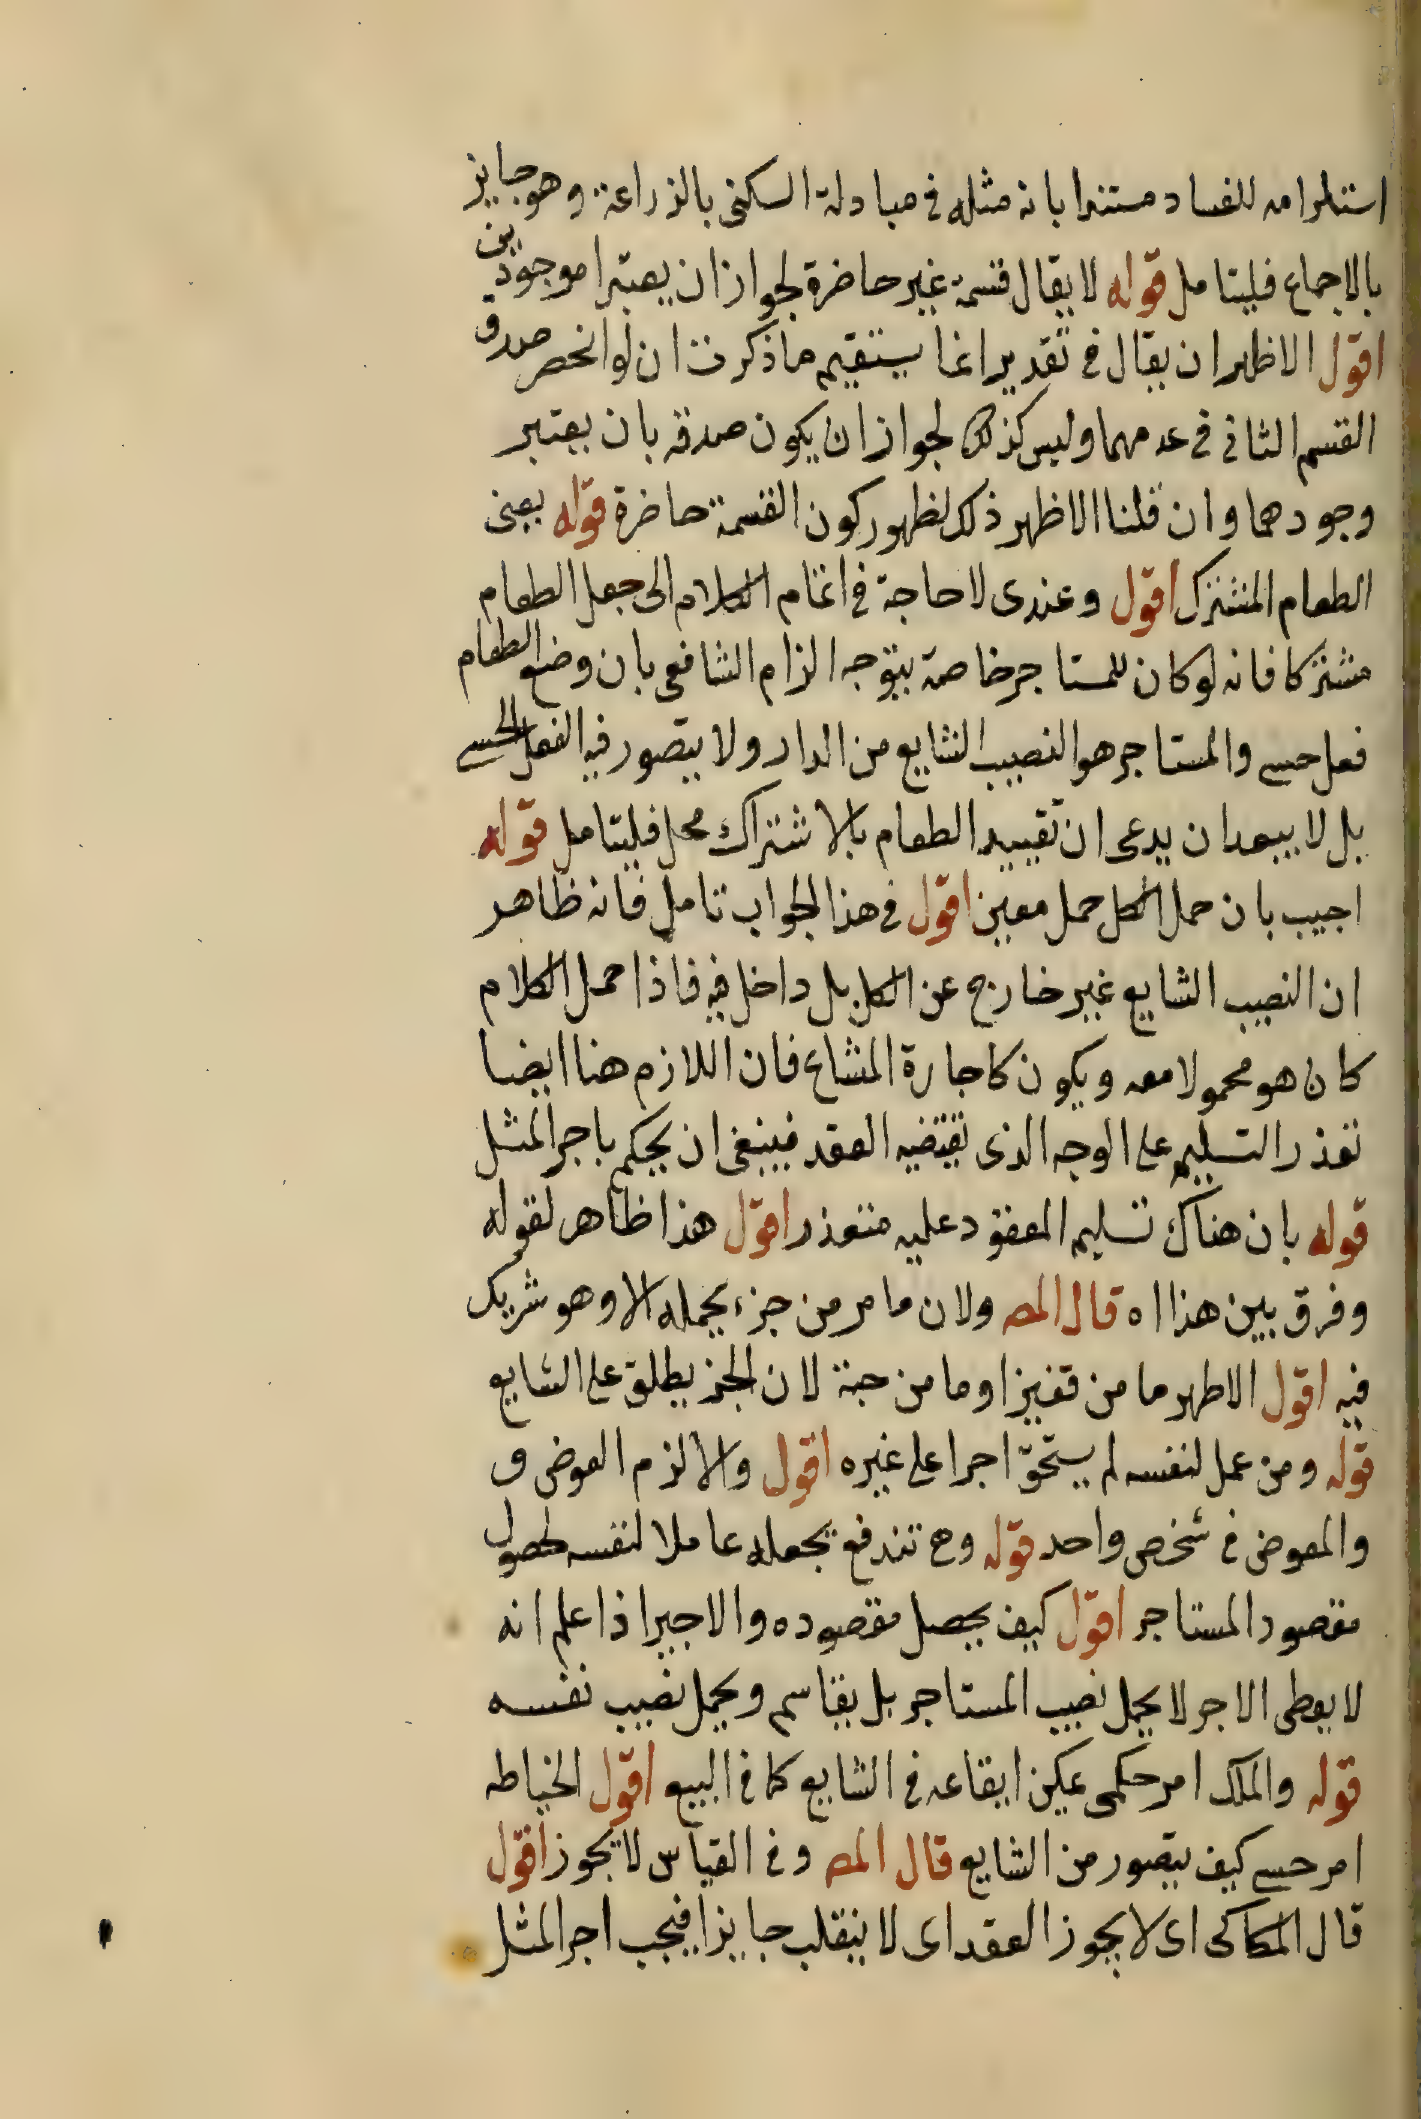 استلزامه للفساد مستندا بانه مثله في مبادلة السكنى بالزراعة وهو جايز
بالاجماع فليتامل قوله لا يقال قسمة غير حاضرة لجواز ان يعتبرا موجودين
اقول الاظهر ان يقال في تقديره انما يستقيم ما ذكرت ان لو انحصر صدق
القسم الثاني في عدمهما وليس كذلك لجواز ان يكون صدقه بان يعتبر
وجودهما وان قلنا الاظهر ذلك لظهور كون القسمة حاضرة قوله يعني
الطعام المشترك اقول وعندى لا حاجة في اتمام الكلام الى جعل الطعام
مشتركا فانه لو كان للمستاجر خاصة يتوجه الزام الشافعي بان وضع الطعام
فعل حسي والمستاجر هو النصيب الشايع من الدار ولا يتصور فيه الفعل الحسي
بل لا يبعد ان يدعى ان تقييد الطعام بالاشتراك مخل فليتامل قوله
اجيب بان حمل الكل حمل معين اقول في هذا الجواب تامل فانه ظاهر
ان النصيب الشايع غير خارج عن الكل بل داخل فيه فاذا حمل الكلام
كان هو محمولا معه ويكون كاجارة المشاع فان اللازم هنا ايضا
تعذر التسليم على الوجه الذى يقتضيه العقد فينبغى ان يحكم باجر المثل
قوله بان هناك تسليم المعقود عليه متعذر اقول هذا ظاهر لقوله
وفرق بين هذا اه قال المص ولان ما مر من جزء يحمله الا وهو شريك
فيه اقول الاظهر ما من قفيز او ما من حبة لان الجزء يطلق على الشايع
قوله ومن عمل لنفسه لم يستحق اجرا على غيره اقول والا لزم العوض و
والمعوض في شخص واحد قوله وح تندفع بجعله عاملا لنفسه لحصول
مقصود المستاجر اقول كيف يحصل مقصوده والاجير اذا علم انه
لا يعطى الاجر لا يحمل نصيب المستاجر بل يقاسم ويحمل نصيب نفسه
قوله والملك امر حكمى يمكن ايقاعه في الشايع كما في البيع اقول الخياطه
امر حسي كيف يتصور من الشايع قال المص وفى القياس لا يجوز اقول
قال الكاكى اى لا يجوز العقد اى لا ينقلب جايزا فيجب اجر المثل